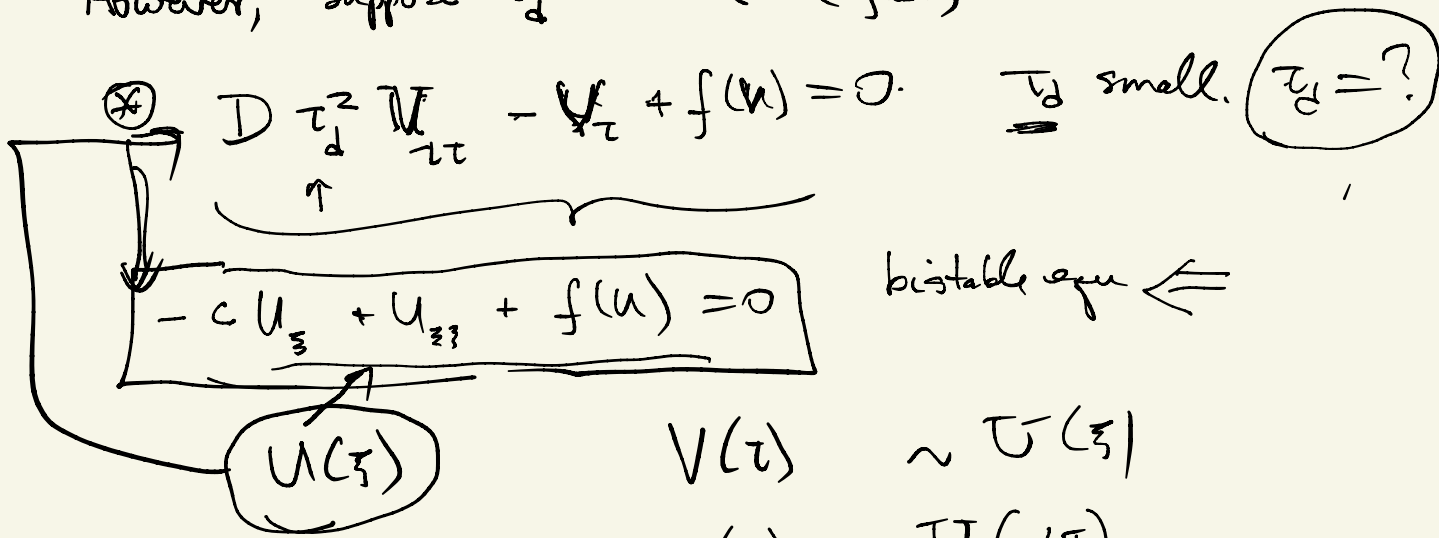 However, suppose
⊛ D τ_d² V_ττ - V_τ + f(u) = 0. τ_d small. τ_d = ?
↑
- c U_ξ + U_ξξ + f(u) = 0 bistable eqn ⇐
U(ξ) V(τ) ~ U(ξ)